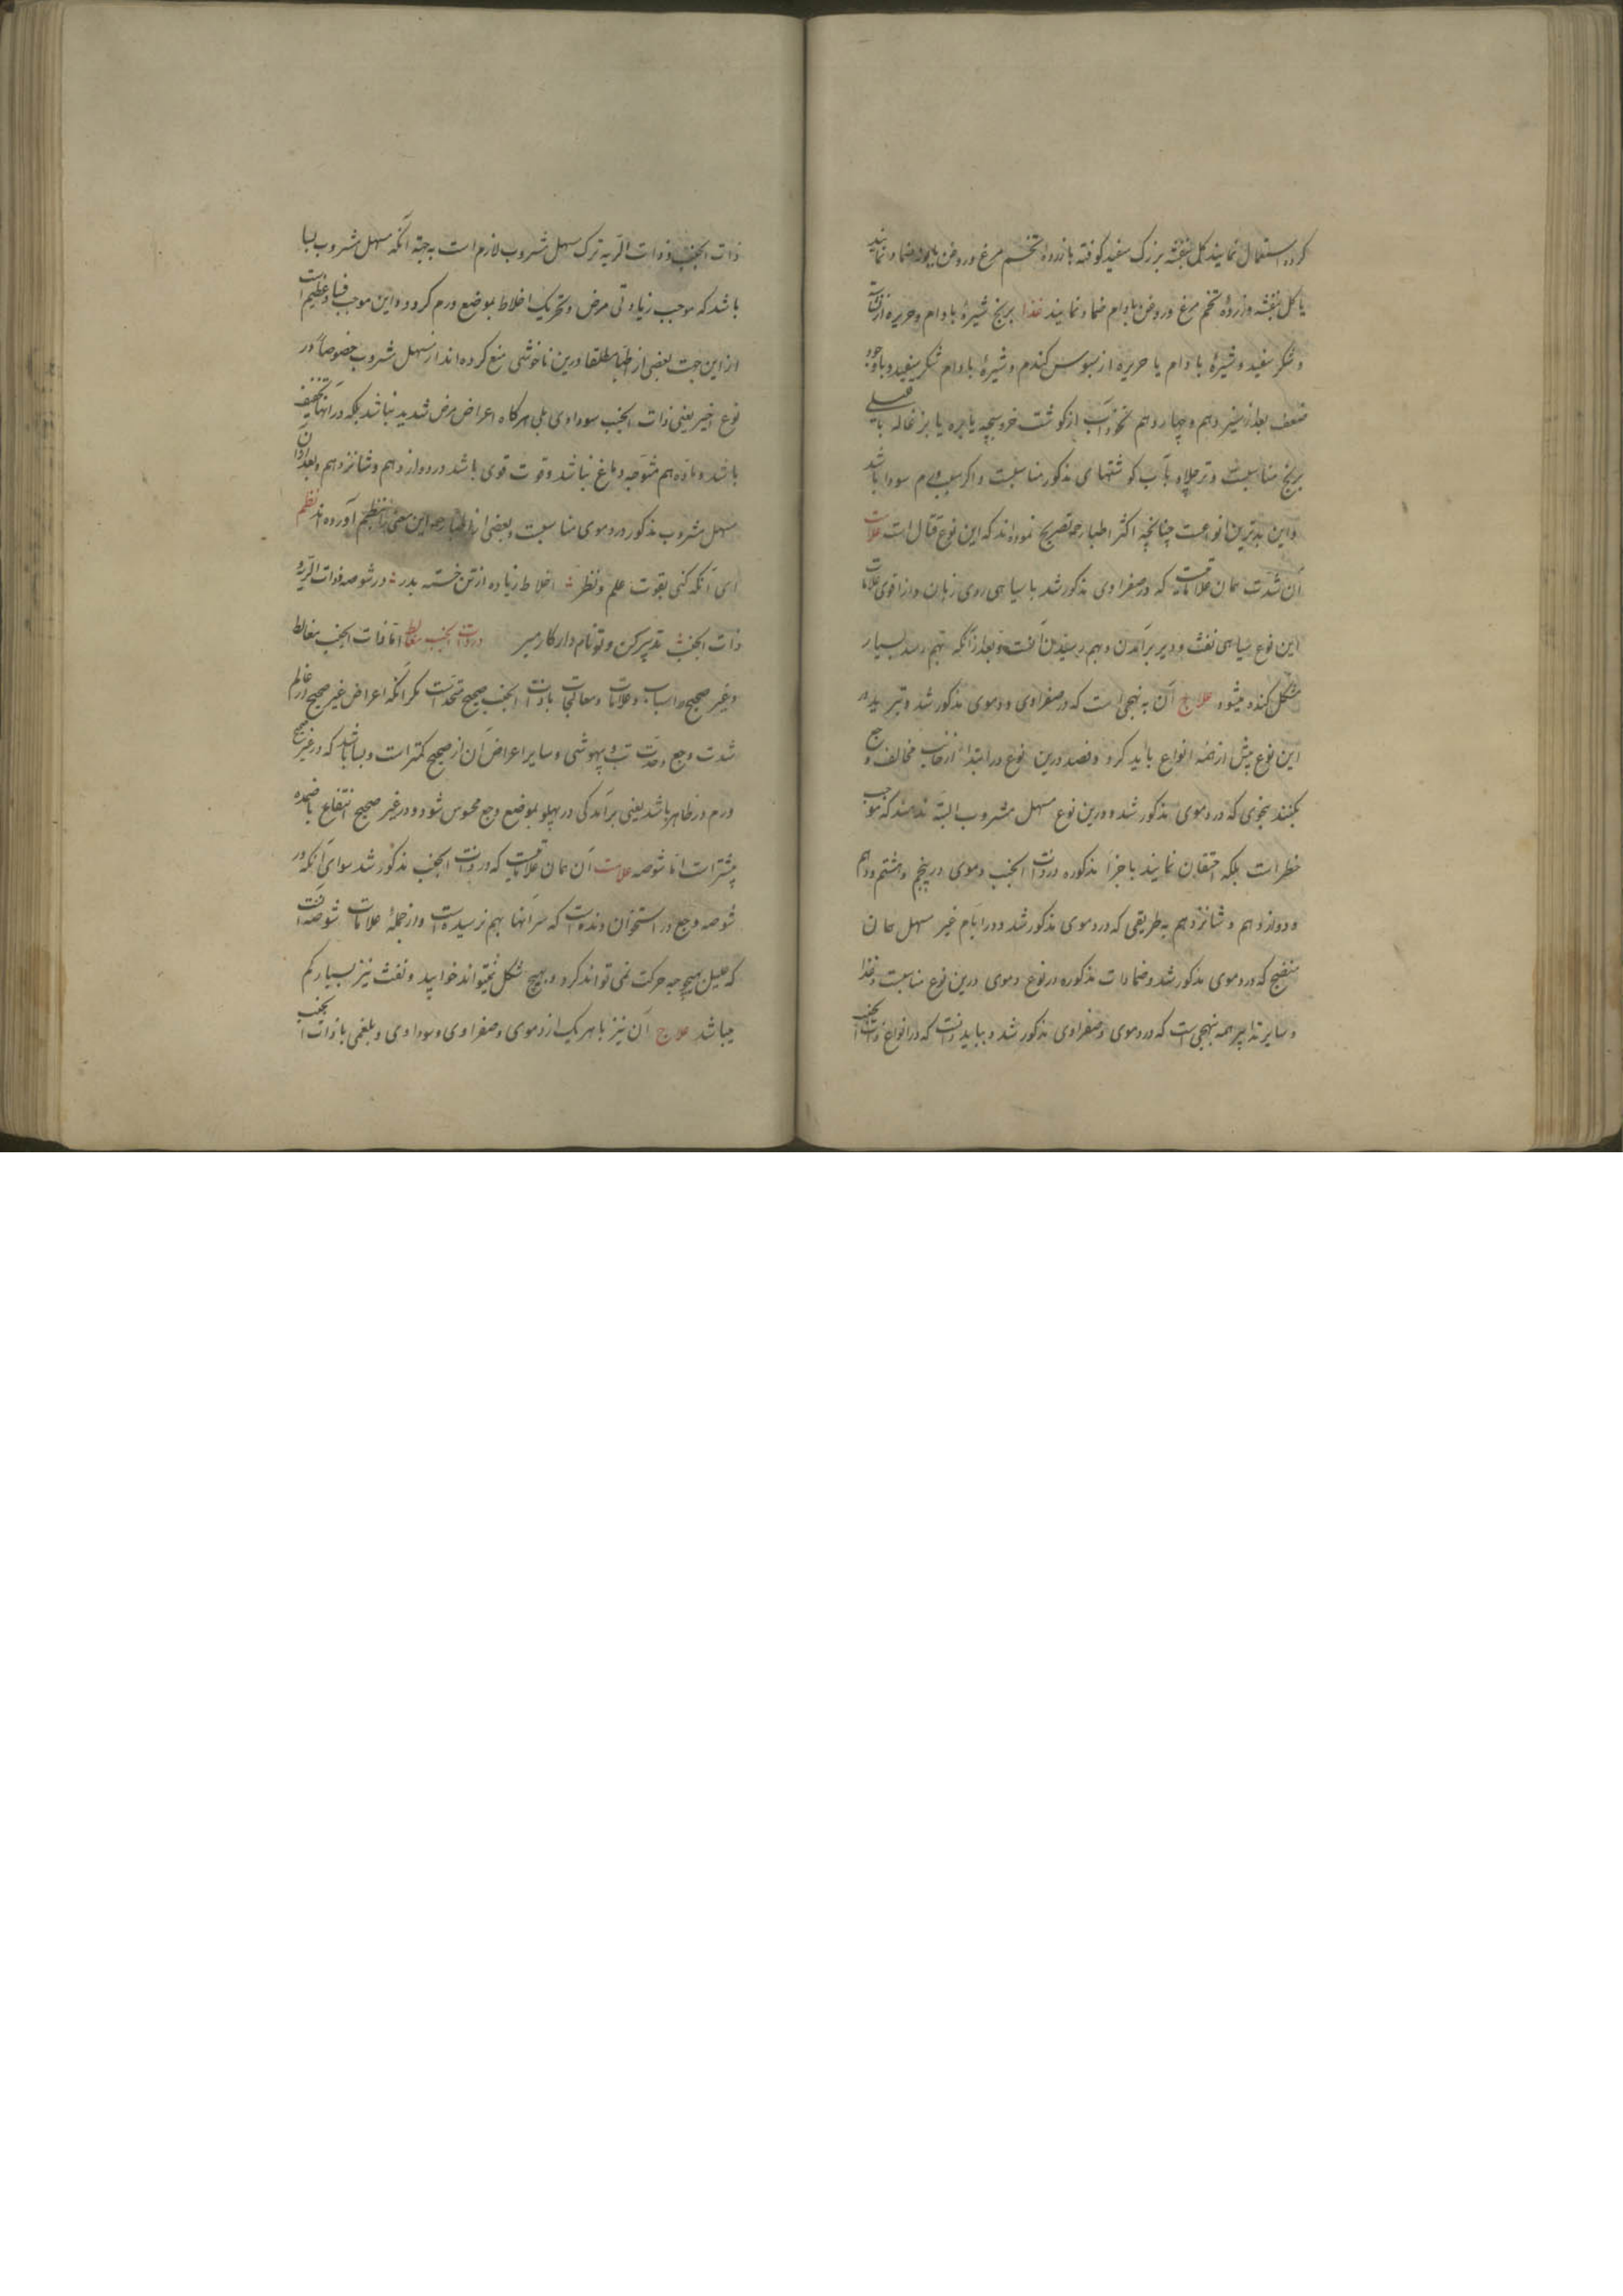 کرده استعمال نمایند گل بنفشه بزرک سفید کوفته با زرده تخم مرغ و روغن بابونه ضماد نمایند
یا گل بنفشه و زرده تخم مرغ و روغن بادام ضماد نمایند غذا برنج شیرهٔ بادام و حریره از نشاسته
و شکر سفید و شیرهٔ بادام یا حریره از سبوس گندم و شیرهٔ بادام شکر سفید و با وجود
ضعف بعد از سیزدهم و چهاردهم نخوداب از گوشت خروسبچه یا بره یا بزغاله با قلیلی
برنج مناسبست و ترچلاو بآب گوشتهای مذکور مناسبست و اگر سبب ورم سودا باشد
و این بدترین انواعست چنانچه اکثر اطبا رحمه تصریح نموده‌اند که این نوع قتال است علامت
آن شدت همان علاماتیست که در صفراوی مذکور شد با سیاهی روی زبان و از اقوی علامات
این نوع سیاهی نفث و دیر برآمدن و بهم رسیدن آنست و بعد از آنکه بهم رسد بسیار
مشکل کنده میشود علاج آن به نهجی است که در صفراوی و دموی مذکور شد و تبرید در
این نوع بیش از همه انواع باید کرد و فصد درین نوع در ابتدا از جانب مخالف وجع
بکنند بنحوی که در دموی مذکور شد و درین نوع مسهل مشروب البته ندهند که موجب
خطر است بلکه احتقان نمایند باجزاء مذکوره در ذات الجنب دموی در پنجم و هشتم و دهم
و دوازدهم و شانزدهم به طریقی که در دموی مذکور شد و در ایام غیر مسهل همان
منضج که در دموی مذکور شد و ضمادات مذکوره در نوع دموی درین نوع مناسبست و غذا
و سایر تدابیر همه بنهجی است که در دموی و صفراوی مذکور شد و بباید دانست که در انواع ذات الجنب
ذات الجنب و ذات الریه ترک مسهل مشروب لازم است به جهة آنکه مسهل مشروب بسا
باشد که موجب زیادتی مرض و تحریک اخلاط بموضع ورم گردد و این موجب فساد عظیم است
از این جهت بعضی از اطبا مطلقا درین ناخوشی منع کرده‌اند از مسهل مشروب خصوصاً در
نوع اخیر یعنی ذات الجنب سوداوی بلی هرگاه اعراض مرض شدید نباشد بلکه در انها تخفیف
باشد و ماده هم متوجه دماغ نباشد و قوت قوی باشد در دوازدهم و شانزدهم و بعد از آن
مسهل مشروب مذکور در دموی مناسبست و بعضی از اطبا رحمه این معنی را بنظم آورده‌اند نظم
ای آنکه کنی بقوت علم و نظر اخلاط زیاده از تن خسته بدر در شوصه و ذات الریه و
ذات الجنب تدبیر کن و تو نام دارکار مبر در ذات الجنب مغالط اما ذات الجنب مغالط
و غیر صحیح و اسباب و علامات و معالجات با ذات الجنب صحیح متحد است مگر آنکه اعراض غیر صحیح از عالم
شدت وجع و حدت تب و بیهوشی و سایر اعراض آن از صحیح کمتر است و بسا باشد که در غیر صحیح
ورم در ظاهر باشد یعنی برآمدگی در پهلو بموضع وجع محسوس شود و در غیر صحیح انتفاع باضمده
بیشتر است اما شوصه علامت آن همان علاماتیست که در ذات الجنب مذکور شد سوای آنکه در
شوصه وجع در استخوان دنده است که سر آنها بهم نرسیده است و از جملهٔ علامات شوصه آنست
که علیل بهیچ وجه حرکت نمی تواند کرد و بهیچ شکل نمیتواند خوابید و نفث نیز بسیار کم
میباشد علاج آن نیز با هر یک از دموی و صفراوی و سوداوی و بلغمی با ذات الجنب